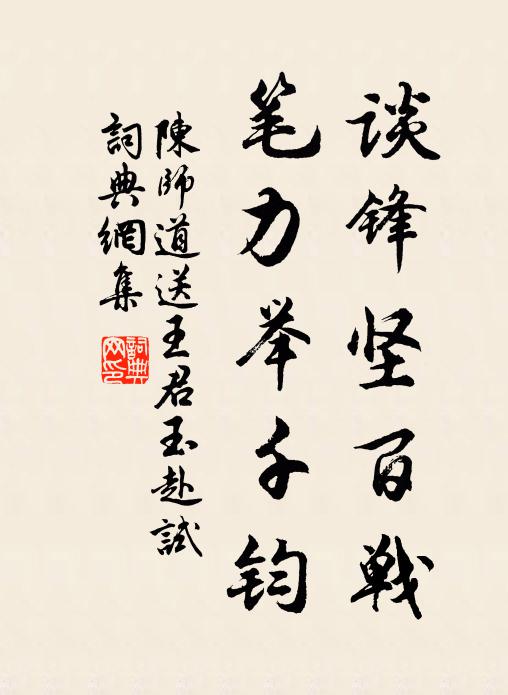 谈锋坚百战
笔力举千钧
陳師道送王君玉赴試
詞典網集
詞典网印